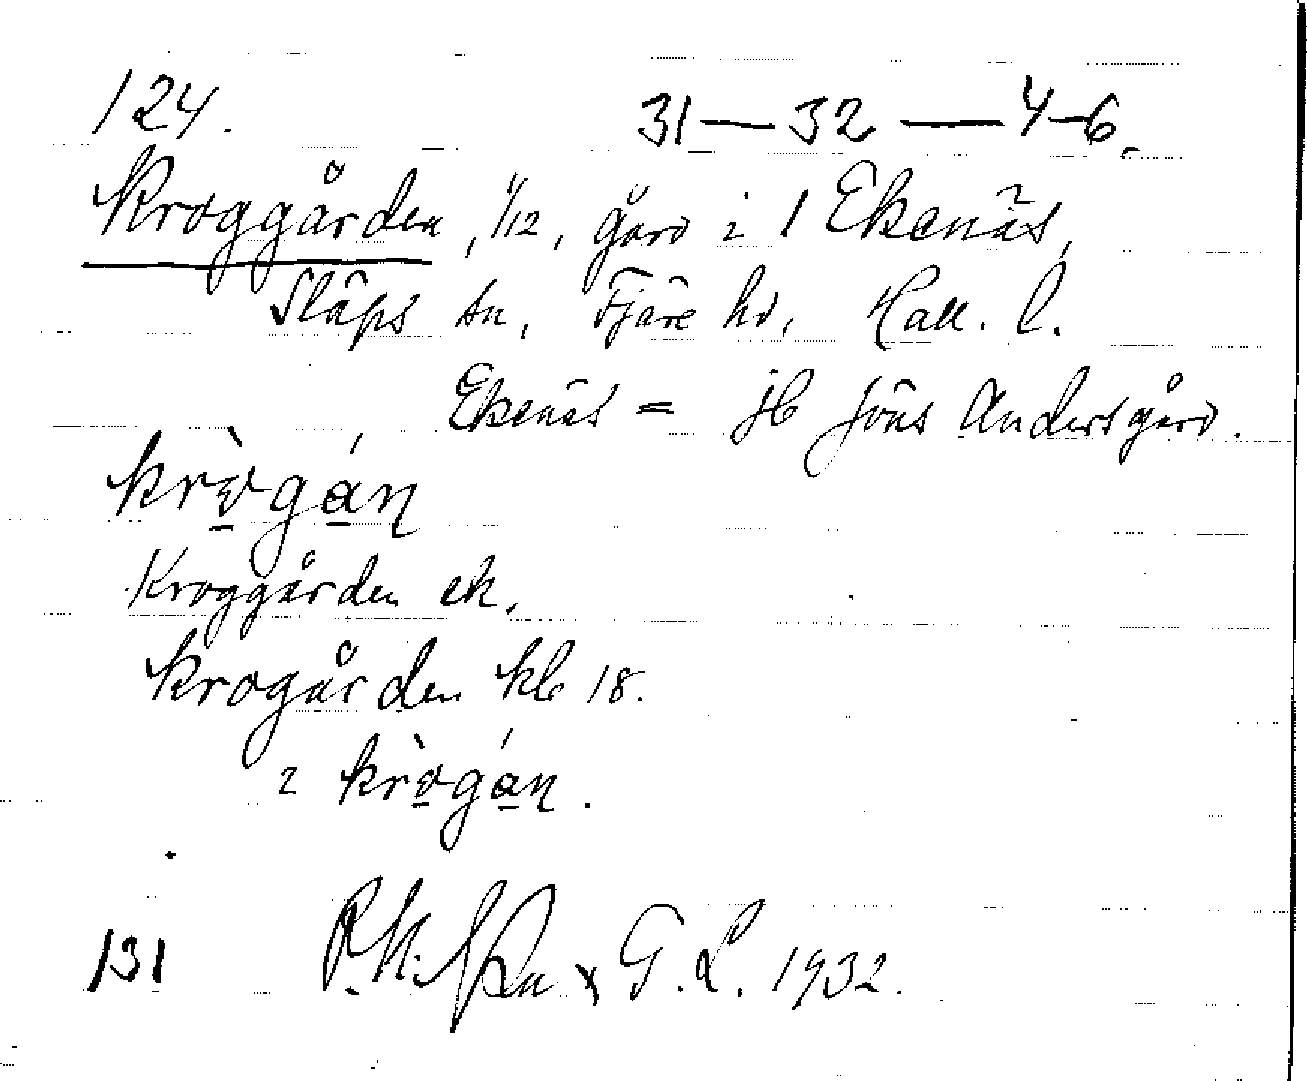 124.
31—32—4-6.
Kroggården, 1/12, gård i 1 Ekenäs,
Släps sn, Fjäre hd, Hall. l.
Ekenäs = jb Jöns Andersgård.
krògán
Kroggården ek.
Krogården kb 18.
2 krògán.
131
G. L. 1932.